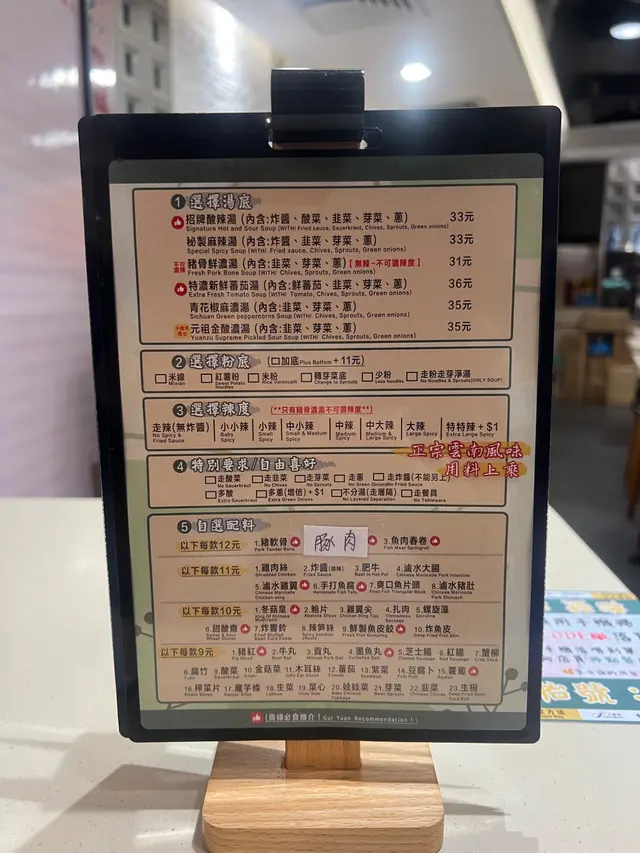 1 選擇湯底
招牌酸辣湯 (內含:炸醬、酸菜、韭菜、芽菜、蔥) 33元
Signature Hot and Sour Soup (WITH/ Fried sauce, Sauerkraut, Chives, Sprouts, Green onions)
秘製麻辣湯 (內含:炸醬、韭菜、芽菜、蔥) 33元
Special Spicy Soup (WITH/ Fried sauce, Chives, Sprouts, Green onions)
豬骨鮮濃湯 (內含:韭菜、芽菜、蔥)【無辣-不可選辣度】 31元
Fresh Pork Bone Soup (WITH/ Chives, Sprouts, Green onions)
特濃新鮮蕃茄湯 (內含:鮮蕃茄、韭菜、芽菜、蔥) 36元
Extra Fresh Tomato Soup (WITH/ Tomato, Chives, Sprouts, Green onions)
青花椒麻濃湯 (內含:韭菜、芽菜、蔥) 35元
Sichuan Green peppercorns Soup (WITH/ Chives, Sprouts, Green onions)
元祖金酸濃湯 (內含:韭菜、芽菜、蔥) 35元
Yuanzu Supreme Pickled Sour Soup (WITH/ Chives, Sprouts, Green onions)
2 選擇粉底 (口加底 Plus Bottom + 11元)
米線 紅薯粉 米粉 轉芽菜底 少粉 走粉走芽淨湯
Mixian Sweet Potato Noodles Rice Vermicelli Change to Sprouts Less Noodles No Noodles & Sprouts(ONLY SOUP)
3 選擇辣度 (**只有豬骨濃湯不可選辣度**)
走辣(無炸醬) 小小辣 小辣 中小辣 中辣 中大辣 大辣 特特辣 + $1
No Spicy & Fried Sauce Baby Spicy Small Spicy Small & Medium Spicy Medium Spicy Medium & Large Spicy Large Spicy Extra Large Spicy
正宗雲南風味
用料上乘
4 特別要求/自由喜好
走酸菜 走韭菜 走芽菜 走蔥 走炸醬(不能另上)
No Sauerkraut No Chives No Sprouts No Green Onions No Fried Sauce
多酸 多蔥(增倍) + $1 不分湯(走層隔) 走餐具
Extra Sauerkraut Extra Green Onions No Layered Separation No Tableware
5 自選配料
以下每款12元 1.豬軟骨 豚肉 3.魚肉春卷
Pork Tender Bone Fish Meat Springroll
以下每款11元 1.雞肉絲 2.炸醬(微辣) 3.肥牛 4.滷水大腸
Shredded Chicken Fried Sauce Beef in Hot Pot Chinese Marinade Pork Intestine
5.滷水雞翼 6.手打魚腐 7.爽口魚片頭 8.滷水豬肚
Chinese Marinade Chicken wing Handmade Fish Tofu Fried Fish Triangular Block Chinese Marinade Pork Stomach
以下每款10元 1.冬菇 2.鮑片 3.雞翼尖 4.扎肉 5.螺旋藻
6.甜酸齋 7.炸響鈴 8.辣筍絲 9.鮮製魚皮餃 10.炸魚皮
以下每款9元 1.豬紅 2.牛丸 3.貢丸 4.墨魚丸 5.芝士腸 6.紅腸 7.蟹柳
6.腐竹 9.酸菜 10.金菇菜 11.木耳絲 12.蕃茄 13.紫菜 14.豆腐卜 15.蘿蔔
16.榨菜片 17.魔芋條 18.生菜 19.菜心 20.娃娃菜 21.芽菜 22.韭菜 23.生根
(貴緣必食推介！Gui Yuan Recommendation!)